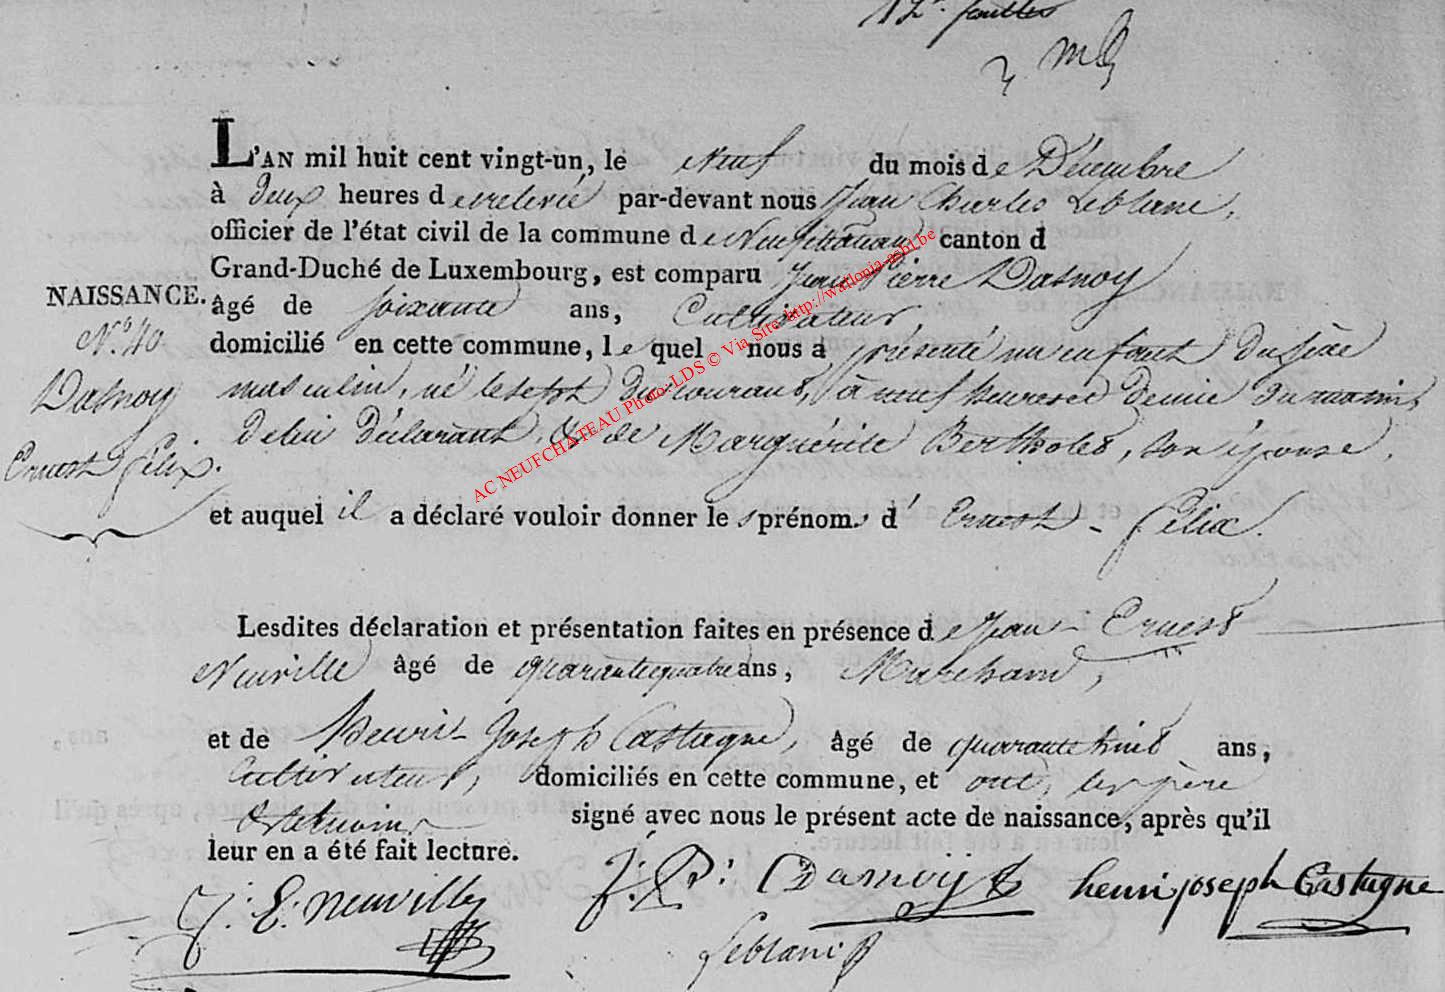 12e. feuillet
L'AN mil huit cent vingt-un, le Neuf du mois de Décembre
à deux heures de relevée par-devant nous Jean Charles Leblanc,
officier de l'état civil de la commune de Neufchateau canton d
Grand-Duché de Luxembourg, est comparu Jean Pierre Dasnoy
NAISSANCE.
âgé de soixante ans, Cultivateur,
N.° 40
domicilié en cette commune, le quel nous a présenté un enfant du sexe
Dasnoy
masculin, né le sept du courant, à neuf heures et demie du matin,
Ernest félix.
de lui déclarant, & de Marguérite Bertholet, son épouse,
et auquel il a déclaré vouloir donner les prénoms d' Ernest - félix.
Lesdites déclaration et présentation faites en présence de Jean - Ernest
Neuville âgé de quarante quatre ans, Marchand,
et de Henri Joseph Castagne, âgé de quarante huit ans,
Cultivateur, domiciliés en cette commune, et ont, les père
et témoins signé avec nous le présent acte de naissance, après qu'il
leur en a été fait lecture.
J. E. neuville
J. P. Dasnoy
henri joseph Castagne
Leblanc
AC NEUFCHATEAU Photo: LDS © Via Site: http://wallonia-asbl.be